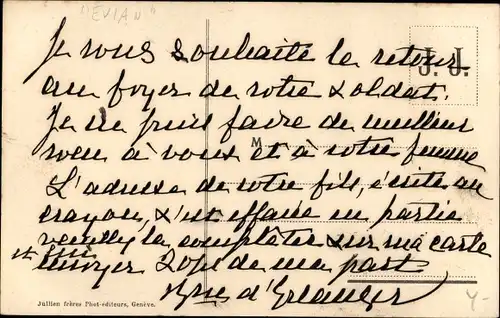 "EVIAN"
Je vous souhaite le retour
au foyer de votre soldat.
Je ne puis faire de meilleur
voeu à vous et à votre femme
L'adresse de votre fils, écrite au
crayon, s'est effacée en partie
veuillez la compléter sur ma carte
et envoyer de ma part
d'Erlanger
J. J.
M
Jullien frères Phot-éditeurs, Genève.
4-